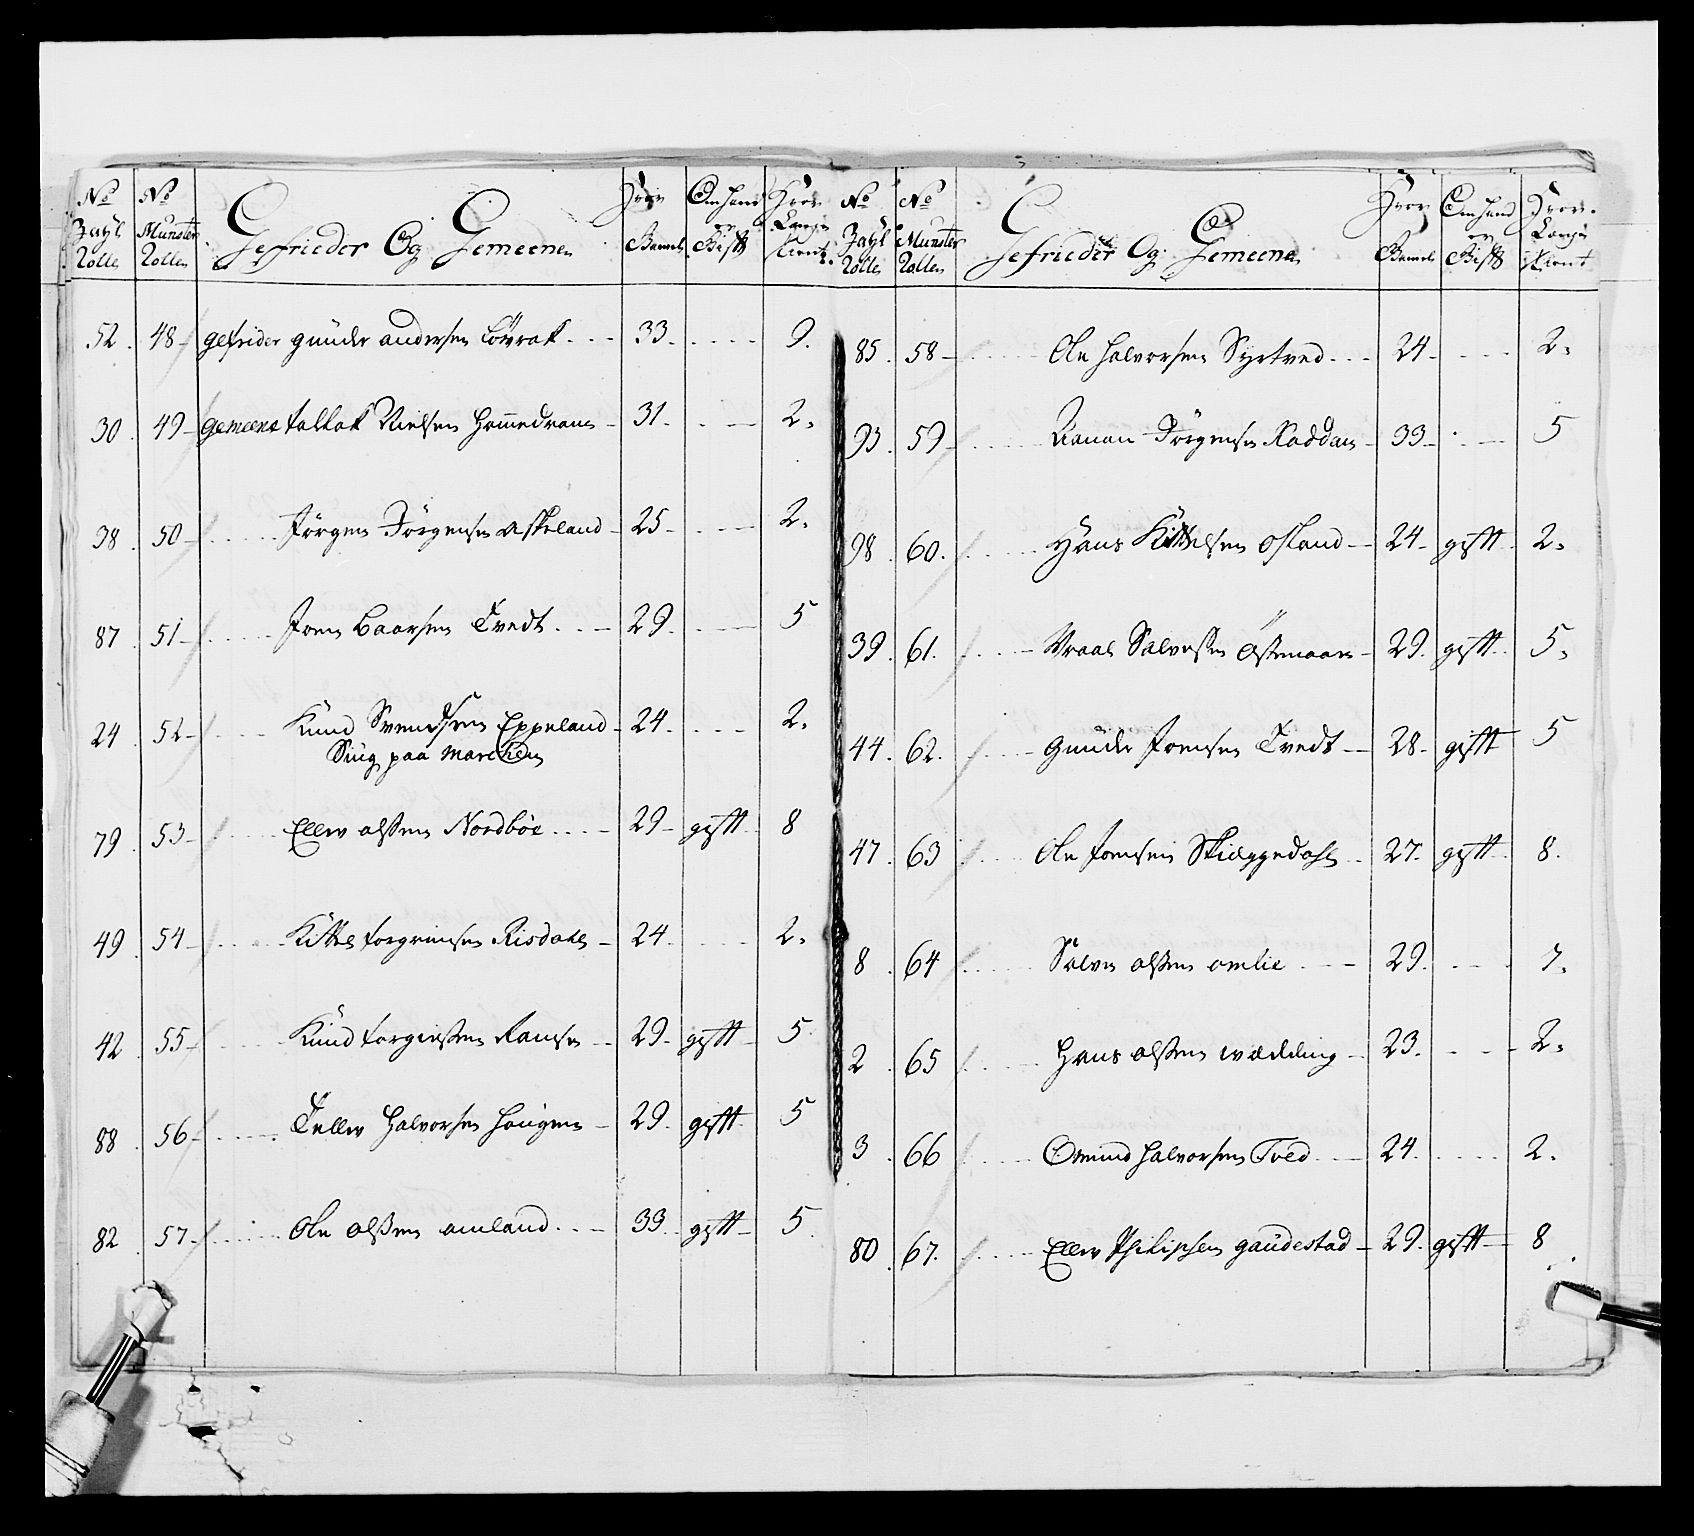 No Zahl Rolle | No Munster Rollen | Gefrieder Og Gemeenen | Hvor Gammel | Om hand er Gift | Hvor Længe tient
52. | 48 | gefrider gunder andersen Løvrak | 33. | | 9.
30. | 49 | gemeene tallak Nielsen Hommedrom | 31. | | 2.
38. | 50 | Jörgen Jörgensen Askeland | 25 | | 2.
87 | 51 | Joen Baarsen Tvedt | 29. | | 5
24. | 52 | Knud Svendsen Eppeland | 24. | | 2.
Siug paa Marchen
79. | 53 | Ellev olsen Nordböe | 29 | gift | 8
49. | 54 | Kittel torgrimsen Risdahl | 24. | | 2.
42. | 55 | Knud torgiersen Ramse | 29. | gift | 5
88. | 56 | Tellev Halvorsen Haugen | 29. | gift | 5
82 | 57 | Ole olsen omland | 33 | gift | 5
No Zahl Rolle | No Munster Rollen | Gefrieder Og Gemeene | Hvor Gammel | Om hand er Gift | Hvor Længe tient
85. | 58 | Ole Halvorsen Syrtved | 24 | | 2.
93. | 59 | Jörgensen | 33 | | 5
98. | 60. | Hans Kittelsen Osland | 24 | gift | 2.
39. | 61. | Salvesen | 29. | gift | 5.
44. | 62. | gunder Joensen Tvedt | 28. | gift | 5
47. | 63 | Ole Joensen Skieggedahl | 27. | gift | 8.
8. | 64 | Salve olsen omlie | 29. | | 7.
2. | 65 | Hans olsen wædding | 23. | | 2.
3. | 66 | Omund Halvorsen Tved | 24. | | 2.
80. | 67. | Ellev Philipsen gaudestad | 29. | gift | 8